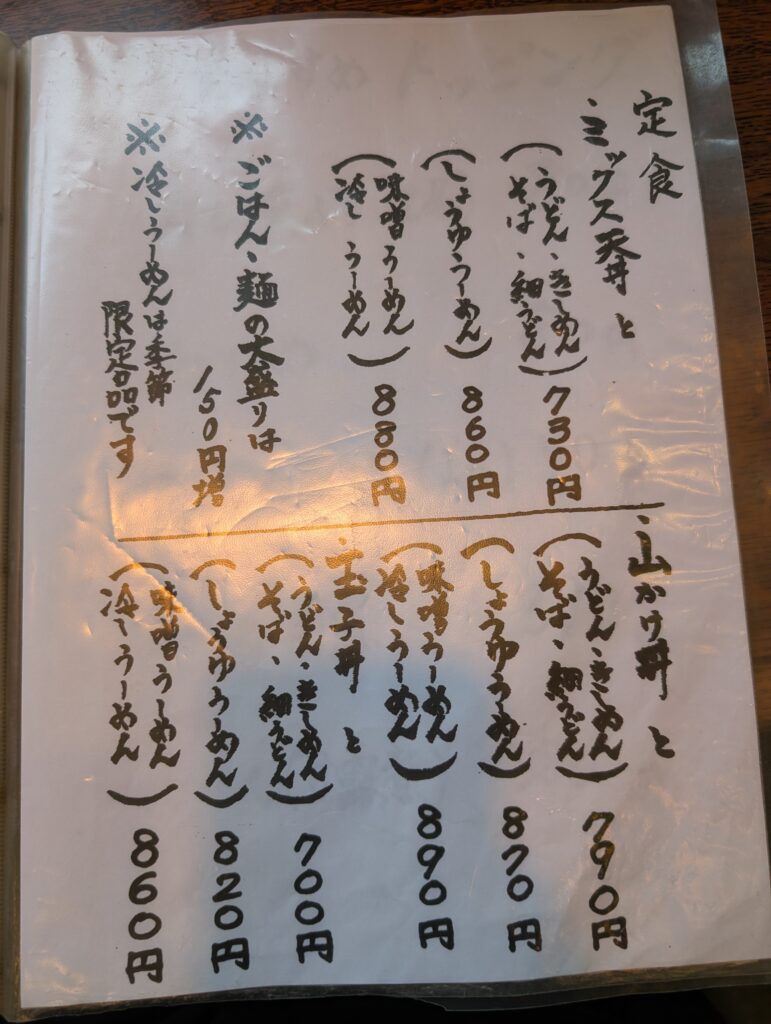 定食
・ミックス天丼と
(うどん・きしめん
そば、細うどん)
730円
(しょうゆうーめん)
860円
(味噌うーめん
冷しうーめん)
880円
※ごはん、麺の大盛りは
150円増
※冷しうーめんは季節
限定品です
・山かけ丼と
(うどん・きしめん
そば、細うどん)
790円
(しょうゆうーめん)
870円
(味噌うーめん
冷しうーめん)
890円
・玉子丼と
(うどん・きしめん
そば、細うどん)
700円
(しょうゆうーめん)
820円
(味噌うーめん
冷しうーめん)
860円